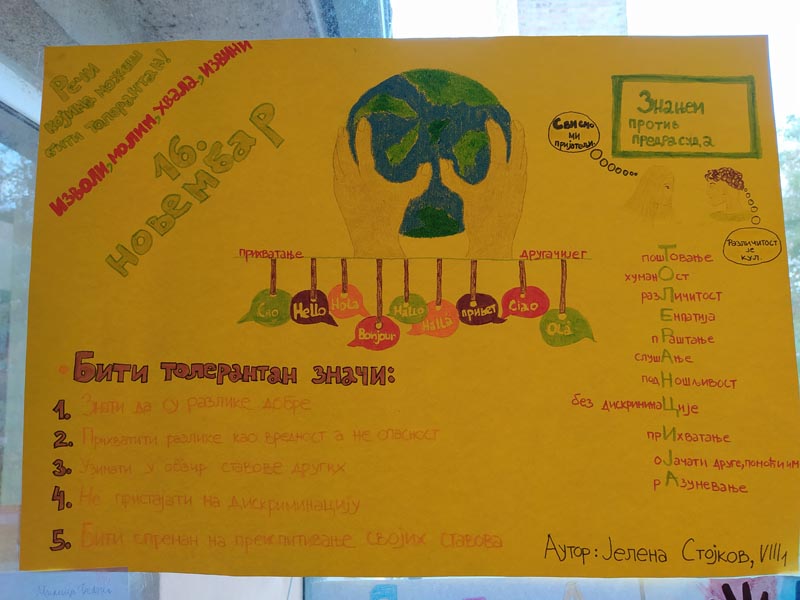 Речи
којима можеш
бити толерантан!
изволи, молим, хвала, извини
16.
новембар
Сви смо
ми
пријатељи.
Знањем
против
предрасуда
Различитост
је
кул.
прихватање
другачијег
Hello
Hola
Bonjour
Hallo
Halla
привет
Ciao
Olá
поштовање
хуманост
разЛичитост
Емпатија
пРаштање
слушАње
подНошљивост
без дискриминаЦије
прИхватање
оЈачати друге, помоћи им
рАзумевање
Бити толерантан значи:
1. Знати да су разлике добре
2. Прихватити разлике као вредност а не опасност
3. Узимати у обзир ставове других
4. Не пристајати на дискриминацију
5. Бити спреман на преиспитивање својих ставова
Аутор: Јелена Стојков, VIII1